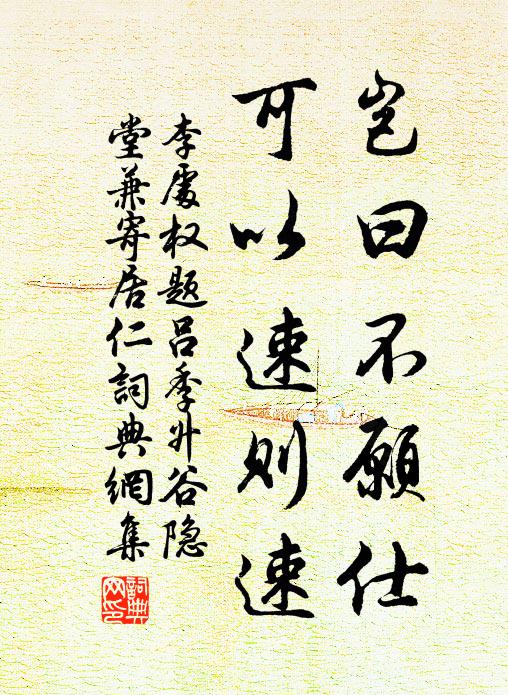 岂曰不願仕
可以速則速
李處权題吕季升谷隐
堂兼寄居仁詞典網集
詞典
网印